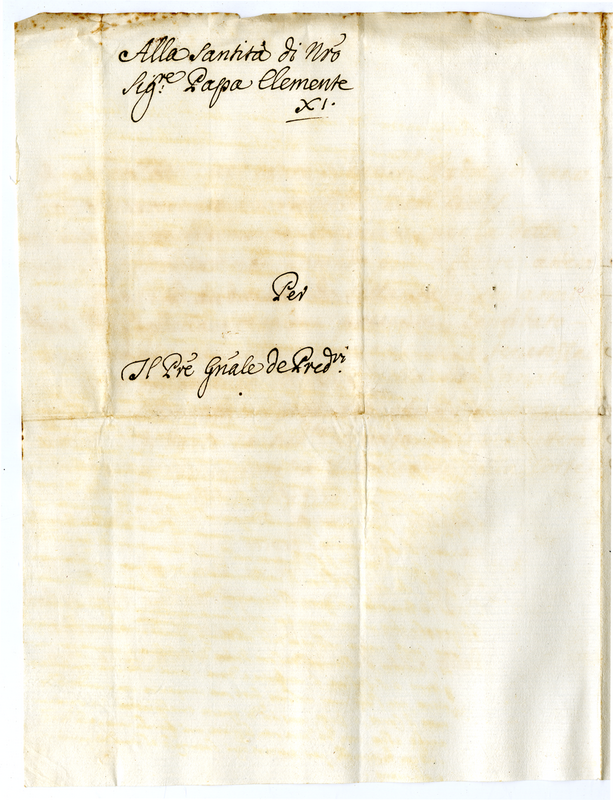 Alla Santità di Nrõ
Sig.re Papa Clemente
XI.
Per
Il Prẽ Gnãle de Pred.ri